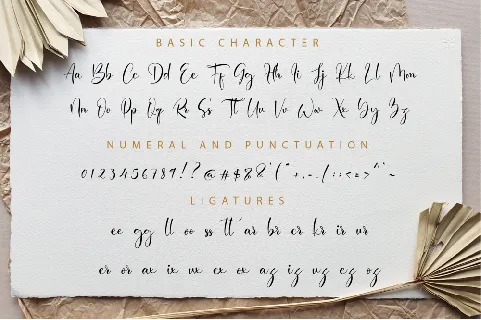 BASIC CHARACTER
Aa Bb Cc Dd Ee Ff Gg Hh Ii Jj Kk Ll Mm
Nn Oo Pp Qq Rr Ss Tt Uu Vv Ww Xx Yy Zz
NUMERAL AND PUNCTUATION
0123456789!?@#$
LIGATURES
ee gg ll oo ss tt ar br cr kr ir ur
er or ax ix ux ex ox az iz uz ez oz